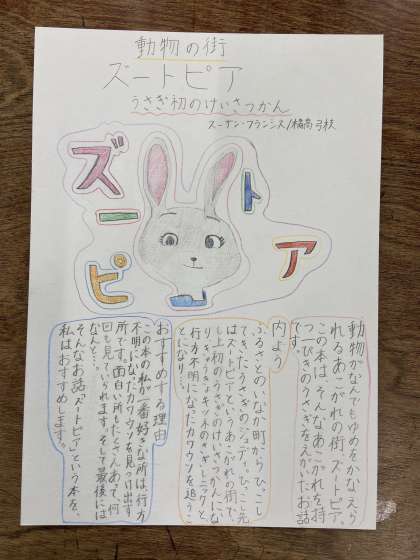 動物の街
ズートピア
うさぎ初のけいさつかん
スーザン・フランシス/橘高弓枝
ズートピア
動物がなんでもゆめをかなえら
れるあこがれの街、ズートピア。
この本は、そんなあこがれを持
つ一ぴきのうさぎをえがいたお話
です。
内よう
ふるさとのいなか町からひっこし
てきたうさぎのジュディ、ひっこし先
はズートピアというあこがれの街で、
し上初のうさぎのけいさつかんにな
りきつねのニックと、
行方不明になったカワウソを追うこ
とになり…。
おすすめする理由
この本の私が一番好きな所は、行方
不明になったカワウソを見つけ出す
所です。面白い所もたくさんあて、何
回も見ていられます。そして最後には
なんと…。
そんなお話「ズートピア」という本を、
私はおすすめします。